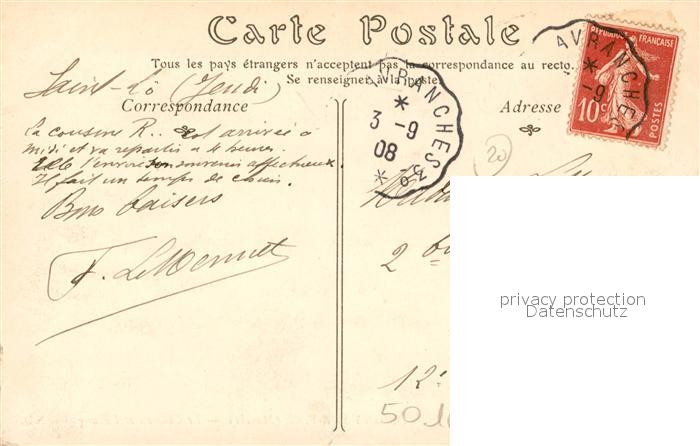 Carte Postale
Tous les pays étrangers n'acceptent pas la correspondance au recto.
Se renseigner à la poste.
Correspondance
Adresse
Saint-Lô (Jeudi)
La cousine R.. est arrivée à
midi et va repartir à 4 heures.
Elle t'envoie son souvenir affectueux.
Il fait un temps de chien.
Bons baisers
F. LeMennet
AVRANCHES
3 -9
08
RÉPUBLIQUE FRANÇAISE
10c
POSTES
AVRANCHES
-9
20
2 bis
12
50.
privacy protection
Datenschutz